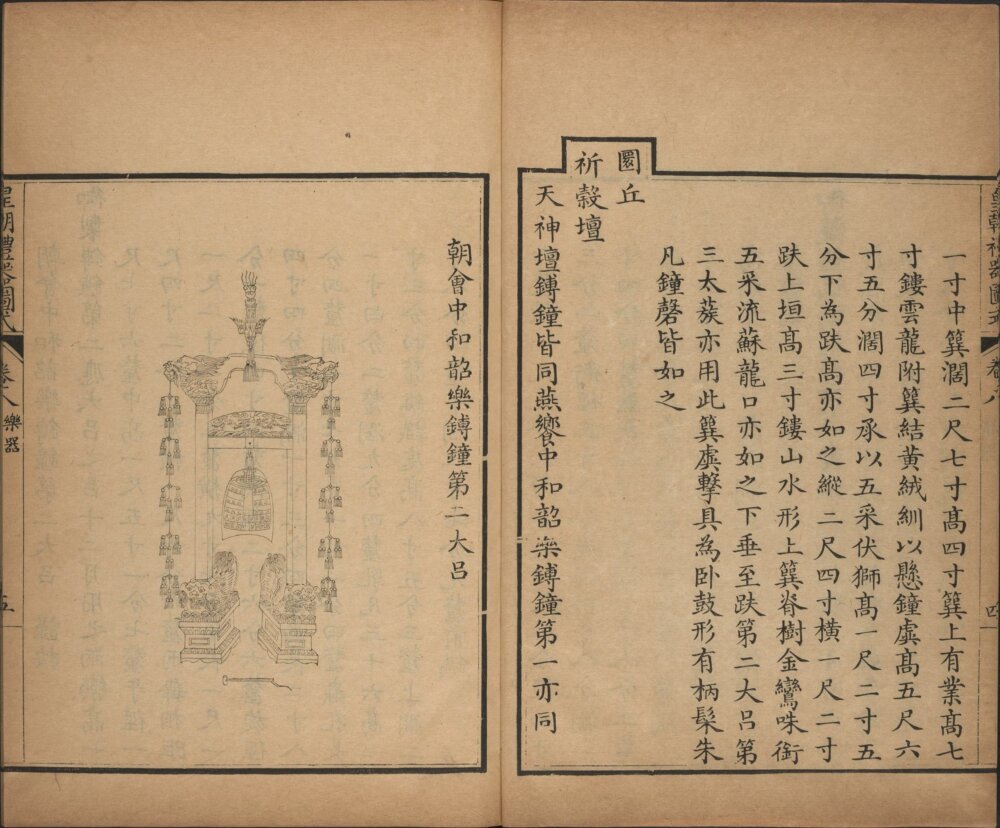 一寸中簨濶二尺七寸髙四寸簨上有業髙七
寸鏤雲龍附簨結黄絨紃以懸鐘虡髙五尺六
寸五分濶四寸承以五采伏獅髙一尺二寸五
分下為趺髙亦如之縱二尺四寸横一尺二寸
趺上垣髙三寸鏤山水形上簨脊樹金鸞咮銜
五采流蘇龍口亦如之下垂至趺第二大吕第
三太蔟亦用此簨虡擊具為卧鼓形有柄髹朱
凡鐘磬皆如之
圜丘
祈穀壇
天神壇鎛鐘皆同燕饗中和韶樂鎛鐘第一亦同
四
朝會中和韶樂鎛鐘第二大吕
皇朝禮器圖式
卷八
樂器
五